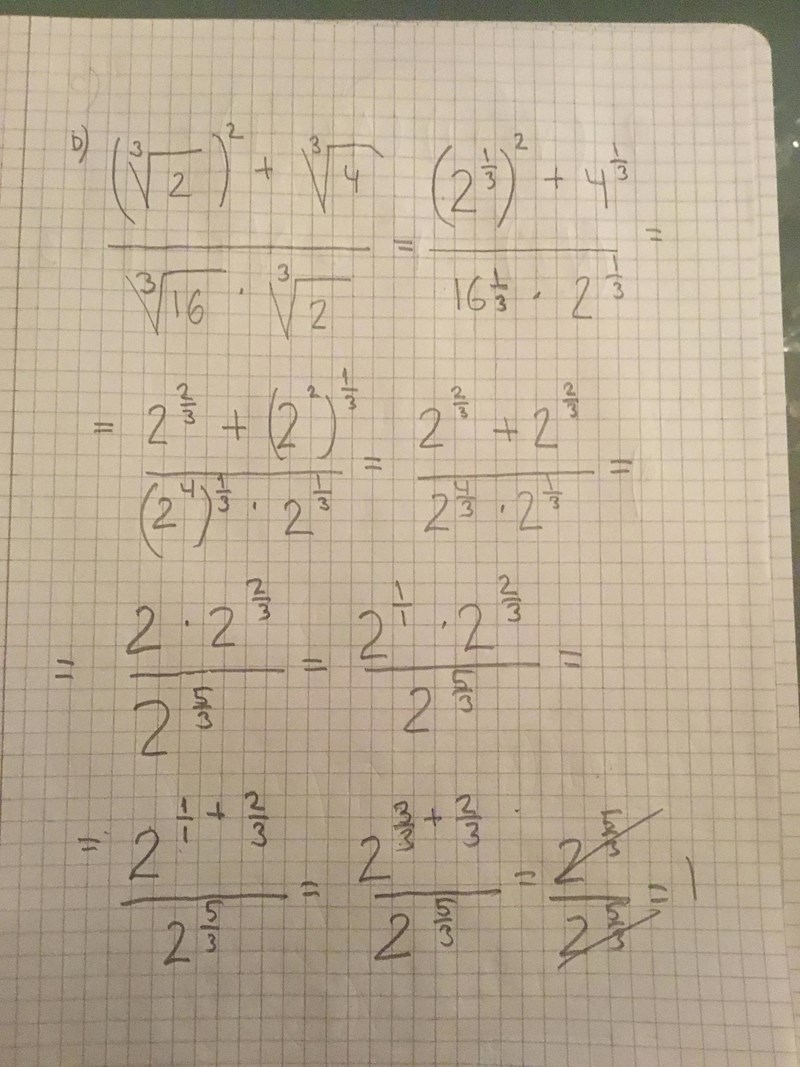 b) ((∛2)² + ∛4) / (∛16 · ∛2) = ((2^(1/3))² + 4^(1/3)) / (16^(1/3) · 2^(1/3)) =
= (2^(2/3) + (2²)^(1/3)) / ((2⁴)^(1/3) · 2^(1/3)) = (2^(2/3) + 2^(2/3)) / (2^(4/3) · 2^(1/3)) =
= (2 · 2^(2/3)) / 2^(5/3) = (2^(1/1) · 2^(2/3)) / 2^(5/3) =
= 2^(1/1 + 2/3) / 2^(5/3) = 2^(3/3 + 2/3) / 2^(5/3) = 2^(5/3) / 2^(5/3) = 1